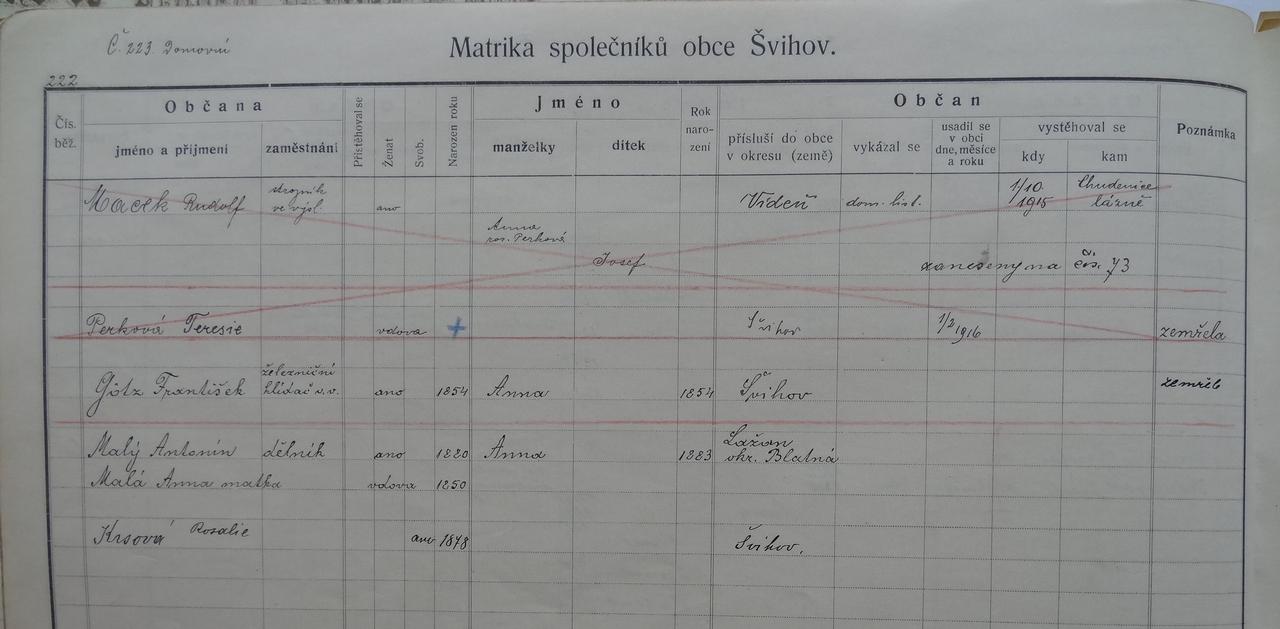 Č 223. Domovní
Matrika společníků obce Švihov.
222
Čís. běž.
Občana
jméno a příjmení
zaměstnání
Přistěhoval se
Ženat
Svob.
Narozen roku
Jméno
manželky
dítek
Rok naro- zení
Občan
přísluší do obce v okresu (země)
vykázal se
usadil se v obci dne, měsíce a roku
vystěhoval se
kdy
kam
Poznámka
Macek Rudolf strojník ve výsl. ano Vídeň dom. list. 1/10 1915 Chudenice lázně
Anna roz. Perková
Josef zaneseny na čís. 73
Perková Teresie vdova + Švihov 1/2 1916 zemřela
Götz František železniční hlídač v.v. ano 1854 Anna 1854 Švihov zemřel
Malý Antonín dělník ano 1880 Anna 1883 Lažan okr. Blatná
Malá Anna matka vdova 1850
Krsová Rosalie ano 1878 Švihov.